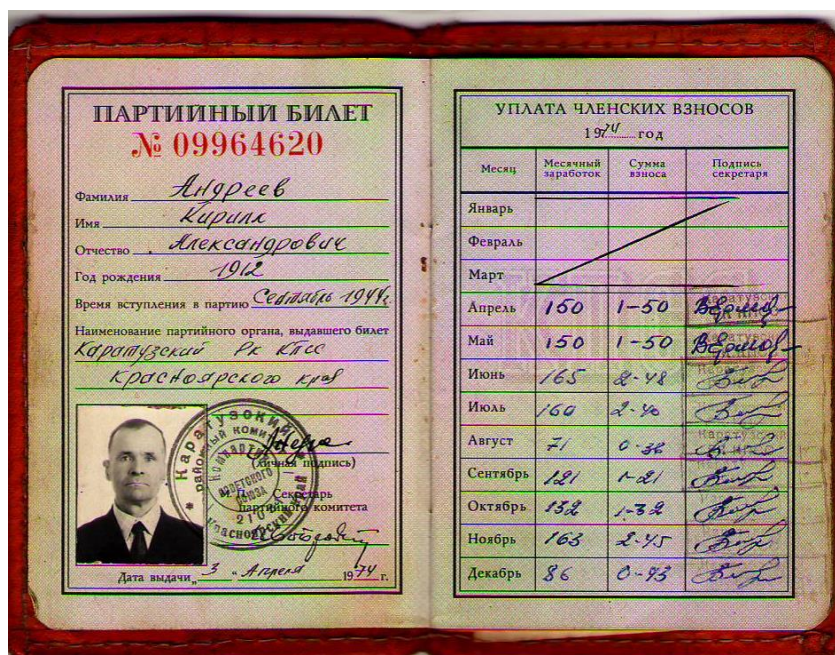 ПАРТИЙНЫЙ БИЛЕТ
№ 09964620
Фамилия Андреев
Имя Кирилл
Отчество Александрович
Год рождения 1912
Время вступления в партию Сентябрь 1944г
Наименование партийного органа, выдавшего билет
Каратузский Рк КПСС
Красноярского края
(личная подпись)
Секретарь
партийного комитета
Дата выдачи „ 3 " Апреля 1974 г.
УПЛАТА ЧЛЕНСКИХ ВЗНОСОВ
1974 год
Месяц Месячный заработок Сумма взноса Подпись секретаря
Январь
Февраль
Март
Апрель 150 1-50
Май 150 1-50
Июнь 165 2-48
Июль 160 2-40
Август 71 0-36
Сентябрь 121 1-21
Октябрь 132 1-32
Ноябрь 163 2-45
Декабрь 86 0-43